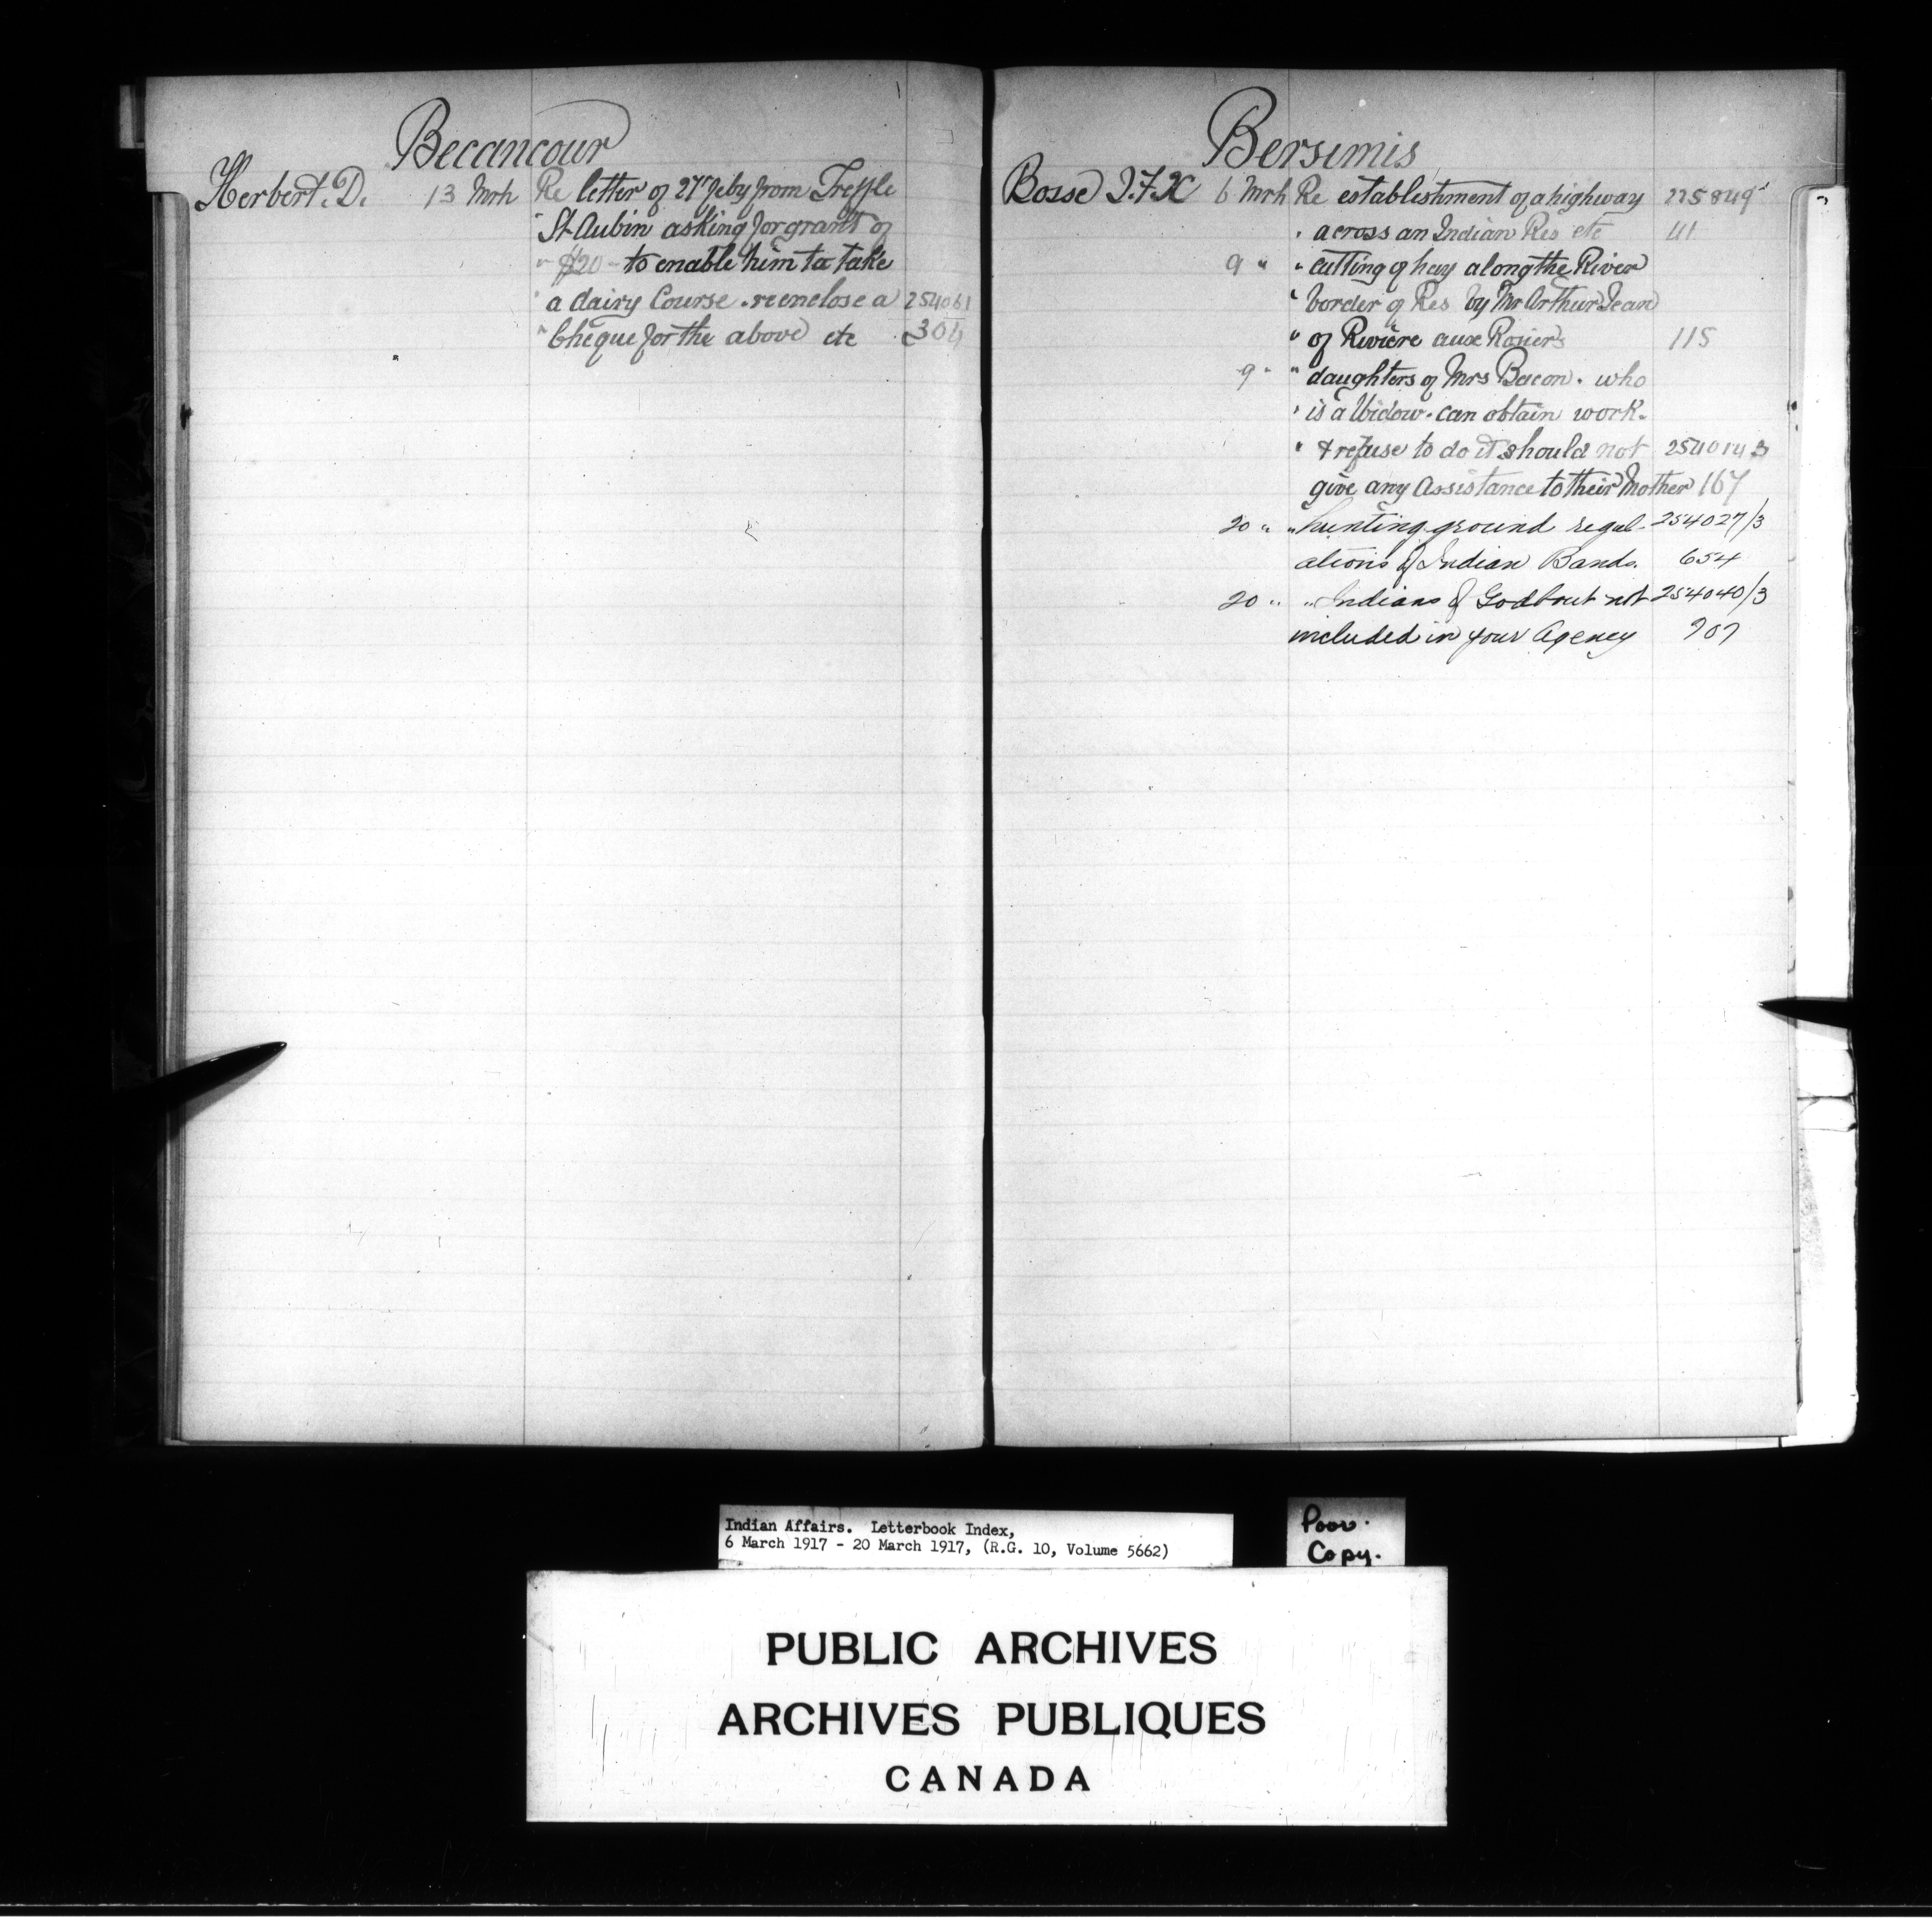 Becancour
Herbert. D. 13 Mrh Re letter of 27" Feby from Treffle
" St Aubin asking for grant of
" $20 - to enable him to take
" a dairy Course . re enclose a 254061
" Cheque for the above etc 304
Bersimis
Bosse J.F.X 6 Mrh Re establishment of a highway 225849
" across an Indian Res etc 41
9 " " cutting of hay along the River
" border of Res by Mr Arthur Jean
" of Riviere aux Rosiers 115
9 " " daughters of Mrs Bacon . who
" is a Widow . can obtain work .
" & refuse to do it should not 254014 3
give any Assistance to their Mother 167
20 " " hunting ground regul- 254027/3
ations of Indian Bands. 654
20 " " Indians of Godbout not 254040/3
included in your Agency 707
Indian Affairs. Letterbook Index,
6 March 1917 - 20 March 1917, (R.G. 10, Volume 5662)
Poor
Copy.
PUBLIC ARCHIVES
ARCHIVES PUBLIQUES
CANADA